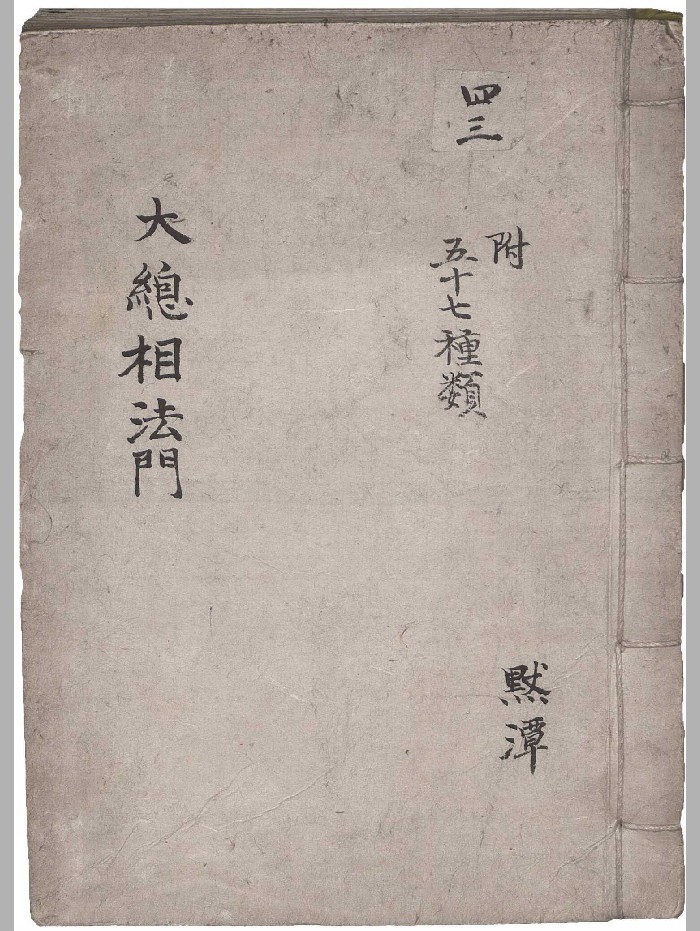 四三
附
五十七種類
默潭
大總相法門